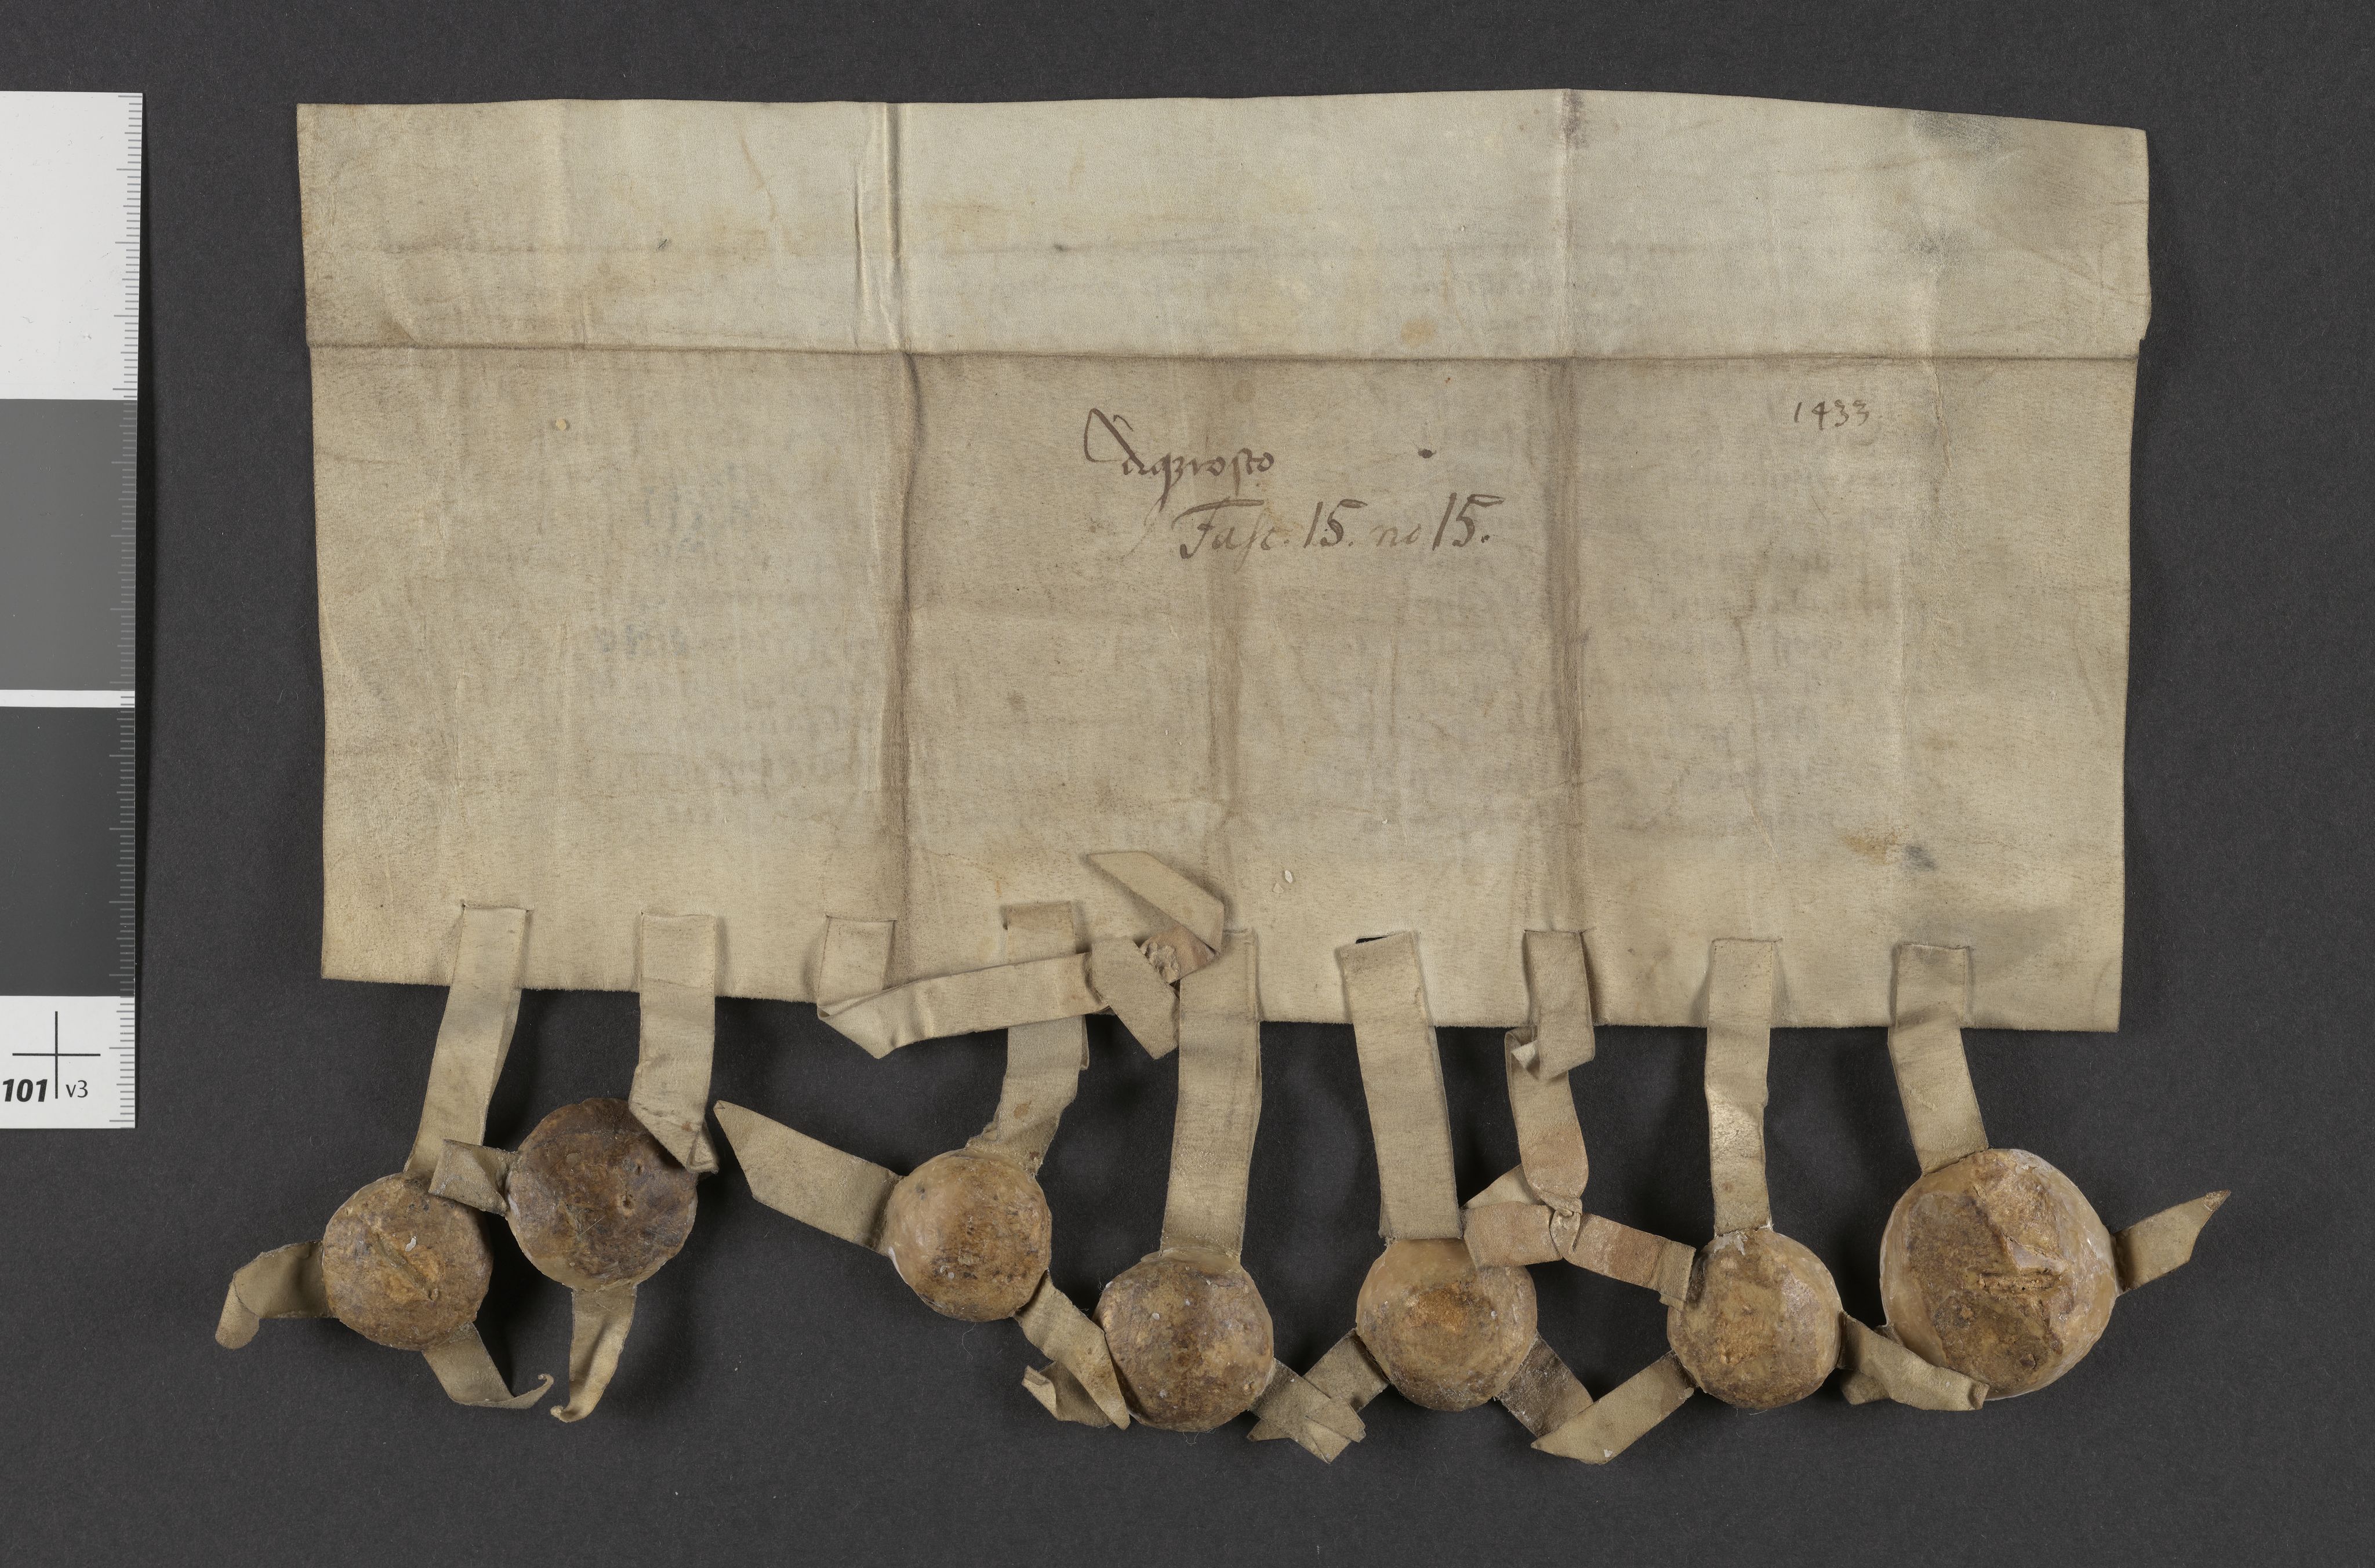 1433
Fasc. 15. no 15.
101 v3